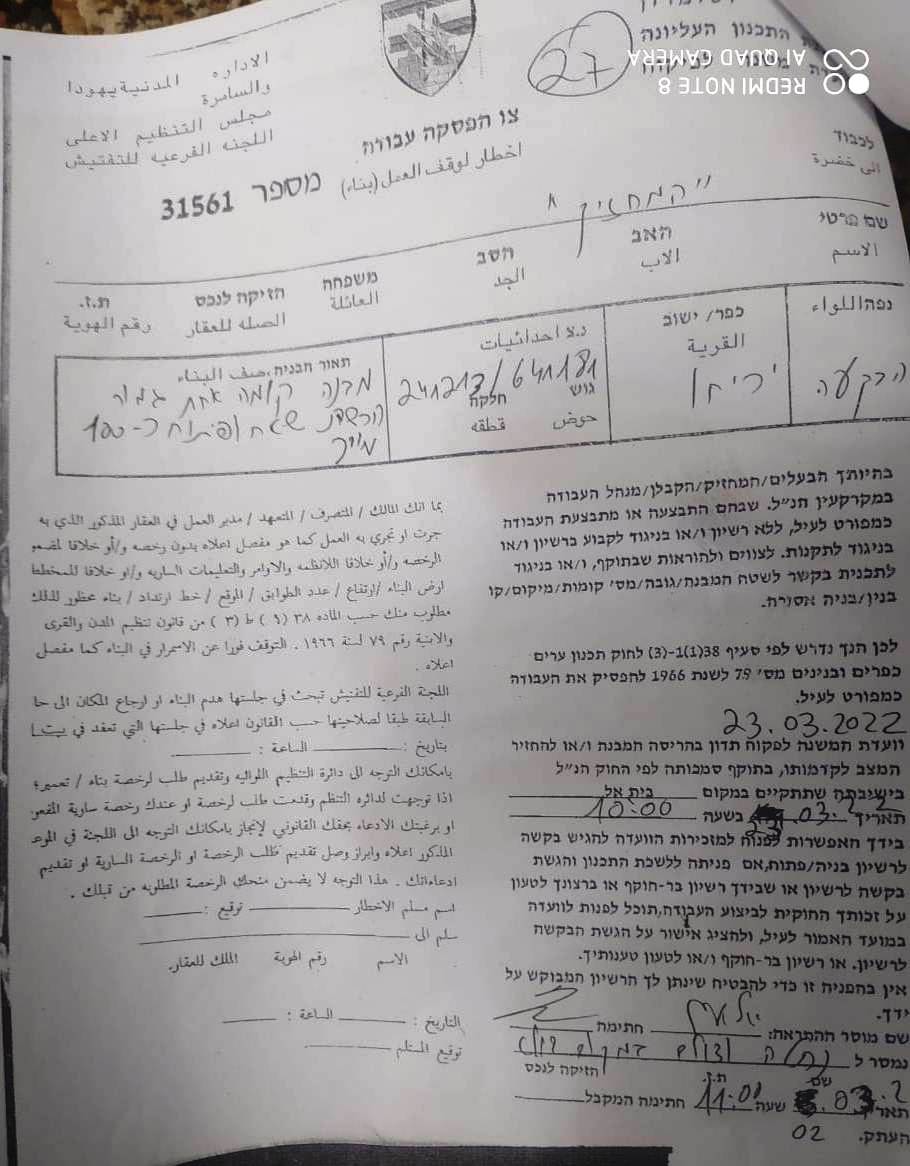 התכנון העליונה
REDMI NOTE 8
AI QUAD CAMERA
27
الاداره المدنية يهودا
والسامرة
مجلس التنظيم الاعلى
اللجنه الفرعيه للتفتيش
צו הפסקה עבודה
اخطار لوقف العمل (بناء)
מספר 31561
לכבוד
الى حضرة
"המחזיק"
שם פרטי האב הסב משפחה הזיקה לנכס ת.ז.
الاسم الاب الجد العائلة الصله للعقار رقم الهوية
נפה اللواء כפר/ ישוב נ.צ احداثيات תאור הבניה وصف البناء
القرية
הבקעה יריחו גוש חלקה
حوض قطعه
מבנה קומה אחת גמור
100
בהיותך הבעלים/המחזיק/הקבלן/מנהל העבודה
במקרקעין הנ"ל. שבהם התבצעה או מתבצעת העבודה
כמפורט לעיל, ללא רשיון ו/או בניגוד לקבוע ברשיון ו/או
בניגוד לתקנות. לצווים ולהוראות שבתוקף, ו/או בניגוד
לתכנית בקשר לשטח המבנה/גובה/מס' קומות/מיקום/קו
בנין/בניה אסורה.
לכן הנך נדרש לפי סעיף 38(1)-(3) לחוק תכנון ערים
כפרים ובנינים מס' 79 לשנת 1966 להפסיק את העבודה
כמפורט לעיל.
23.03.2022
וועדת המשנה לפקוח תדון בהריסה המבנה ו/או להחזיר
המצב לקדמותו, בתוקף סמכותה לפי החוק הנ"ל
בישיבתה שתתקיים במקום בית אל
תאריך 03. בשעה 10:00
בידך האפשרות לפנות למזכירות הוועדה להגיש בקשה
לרשיון בניה/פתוח, אם פניתה ללשכת התכנון והגשת
בקשה לרשיון או שבידך רשיון בר-תוקף או ברצונך לטעון
על זכותך החוקית לביצוע העבודה, תוכל לפנות לוועדה
במועד האמור לעיל, ולהציג אישור על הגשת הבקשה
לרשיון. או רשיון בר-תוקף ו/או לטעון טענותיך.
אין בהפניה זו כדי להבטיח שינתן לך הרשיון המבוקש על
ידך.
שם מוסר ההתראה: חתימה
נמסר ל
שם ת.ז. הזיקה לנכס
תאריך 03. שעה 11:00 חתימה המקבל
העתק. 02
بما انك المالك / المتصرف / المتعهد / مدير العمل في العقار المذكور الذي به
جرت او تجري به العمل كما هو مفصل اعلاه بدون رخصه و/أو خلافا
الرخصه و/أو خلافا للانظمه والاوامر والتعليمات الساريه و/او خلافا للمخطط
ارض البناء / ارتفاع / عدد الطوابق / الموقع / خط ارتداد / بناء محظور لذلك
مطلوب منك حسب الماده ٣٨ (١) ط (٣) من قانون تنظيم المدن والقرى
والابنية رقم ٧٩ لسنة ١٩٦٦. التوقف فورا عن الاسمرار في البناء كما مفصل
اعلاه.
اللجنة الفرعية للتفتيش تبحث في جلستها هدم البناء او ارجاع المكان الى
السابقة طبقا لصلاحيتها حسب القانون اعلاه في جلستها التي تعقد في
بتاريخ : الساعة :
بامكانك التوجه الى دائرة التنظيم اللوائيه وتقديم طلب لرخصة بناء / تعمير؛
اذا توجهت لدائره التنظم وقدمت طلب لرخصة او عندك رخصة سارية
او برغبتك الادعاء بحقك القانوني لإنجاز بامكانك التوجه الى اللجنة في
المذكور اعلاه وابراز وصل تقديم طلب الرخصة او الرخصة السارية او تقديم
ادعاءاتك. هذا التوجه لا يضمن منحك الرخصة المطلوبه من قبلك.
اسم مسلم الاخطار توقيع :
سلم الى
الاسم رقم الهوية الملك للعقار.
التاريخ : الساعة :
توقيع المستلم